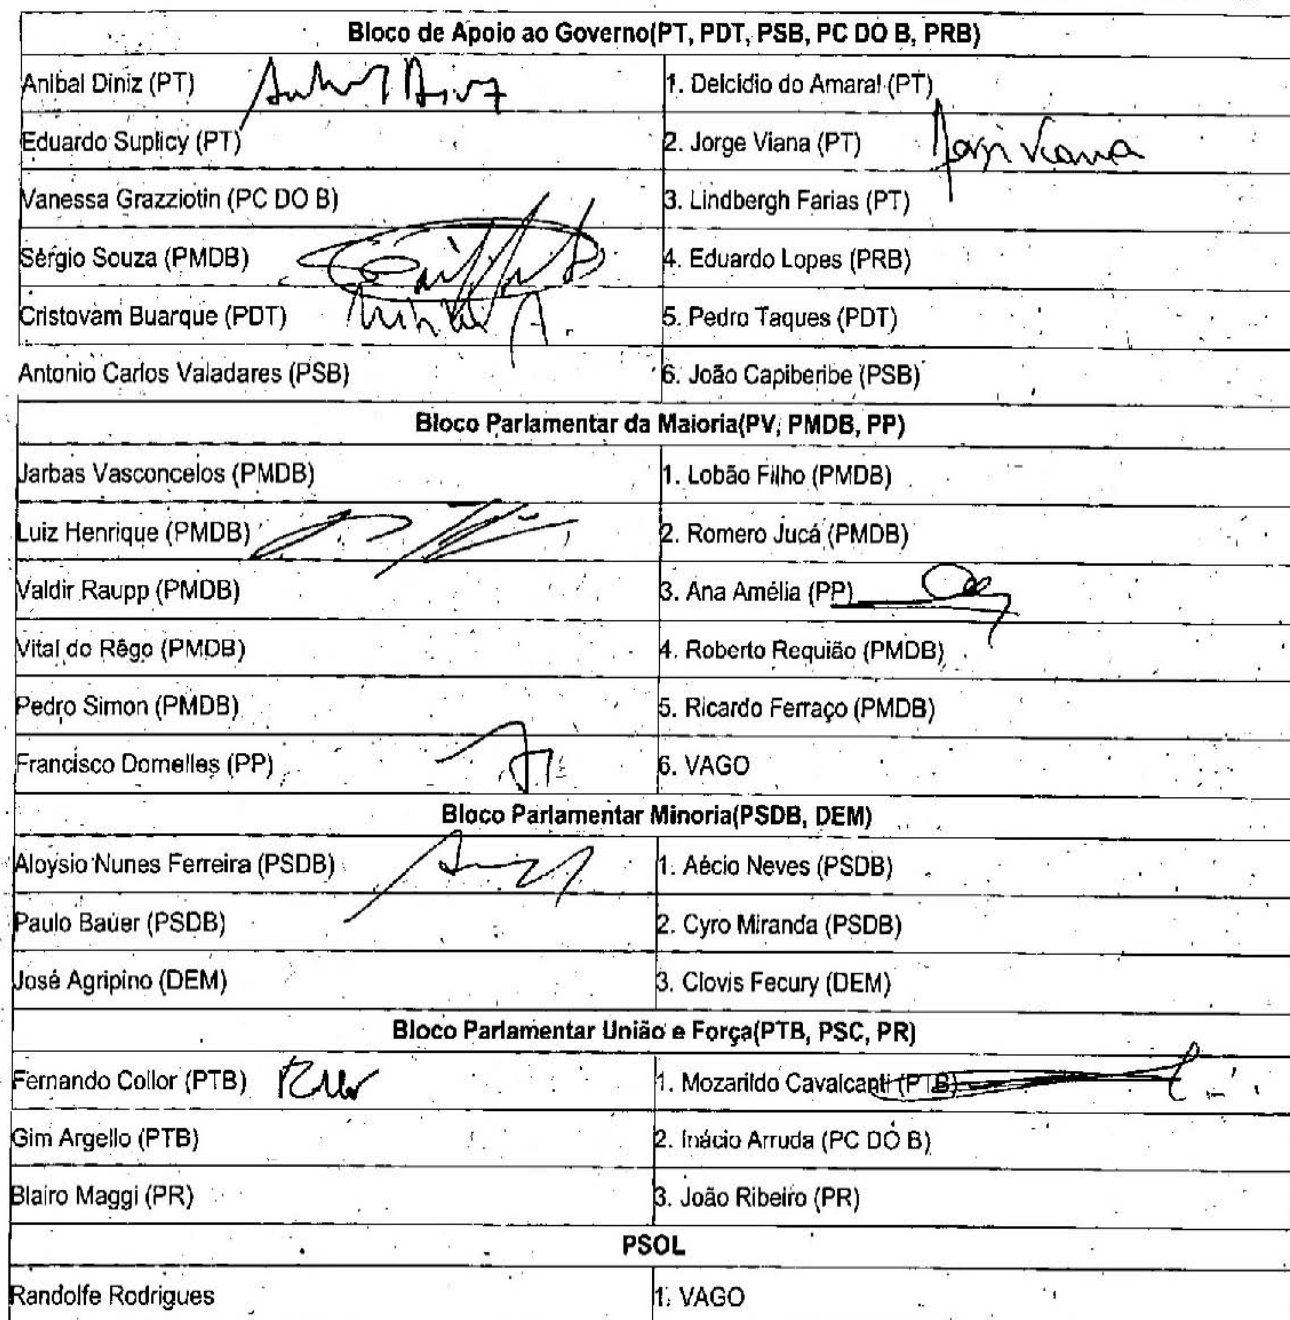 Bloco de Apoio ao Governo(PT, PDT, PSB, PC DO B, PRB)
Anibal Diniz (PT) 1. Delcídio do Amaral (PT)
Eduardo Suplicy (PT) 2. Jorge Viana (PT) Jorge Viana
Vanessa Grazziotin (PC DO B) 3. Lindbergh Farias (PT)
Sérgio Souza (PMDB) 4. Eduardo Lopes (PRB)
Cristovam Buarque (PDT) 5. Pedro Taques (PDT)
Antonio Carlos Valadares (PSB) 6. João Capiberibe (PSB)
Bloco Parlamentar da Maioria(PV, PMDB, PP)
Jarbas Vasconcelos (PMDB) 1. Lobão Filho (PMDB)
Luiz Henrique (PMDB) 2. Romero Jucá (PMDB)
Valdir Raupp (PMDB) 3. Ana Amélia (PP)
Vital do Rêgo (PMDB) 4. Roberto Requião (PMDB)
Pedro Simon (PMDB) 5. Ricardo Ferraço (PMDB)
Francisco Dornelles (PP) 6. VAGO
Bloco Parlamentar Minoria(PSDB, DEM)
Aloysio Nunes Ferreira (PSDB) 1. Aécio Neves (PSDB)
Paulo Bauer (PSDB) 2. Cyro Miranda (PSDB)
José Agripino (DEM) 3. Clovis Fecury (DEM)
Bloco Parlamentar União e Força(PTB, PSC, PR)
Fernando Collor (PTB) 1. Mozarildo Cavalcanti (PTB)
Gim Argello (PTB) 2. Inácio Arruda (PC DO B)
Blairo Maggi (PR) 3. João Ribeiro (PR)
PSOL
Randolfe Rodrigues 1. VAGO